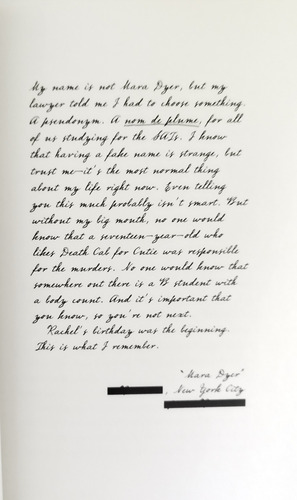 My name is not Mara Dyer, but my
lawyer told me I had to choose something.
A pseudonym. A nom de plume, for all
of us studying for the SATs. I know
that having a fake name is strange, but
trust me—it's the most normal thing
about my life right now. Even telling
you this much probably isn't smart. But
without my big mouth, no one would
know that a seventeen-year-old who
likes Death Cab for Cutie was responsible
for the murders. No one would know that
somewhere out there is a B student with
a body count. And it's important that
you know, so you're not next.
Rachel's birthday was the beginning.
This is what I remember.
"Mara Dyer"
, New York City